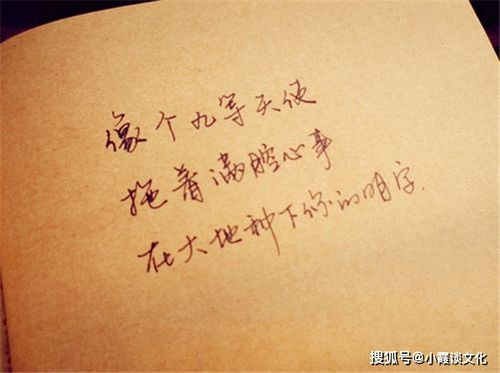 像个九等天使
拖着满腔心事
在大地种下你的名字.
搜狐号@小霞谈文化